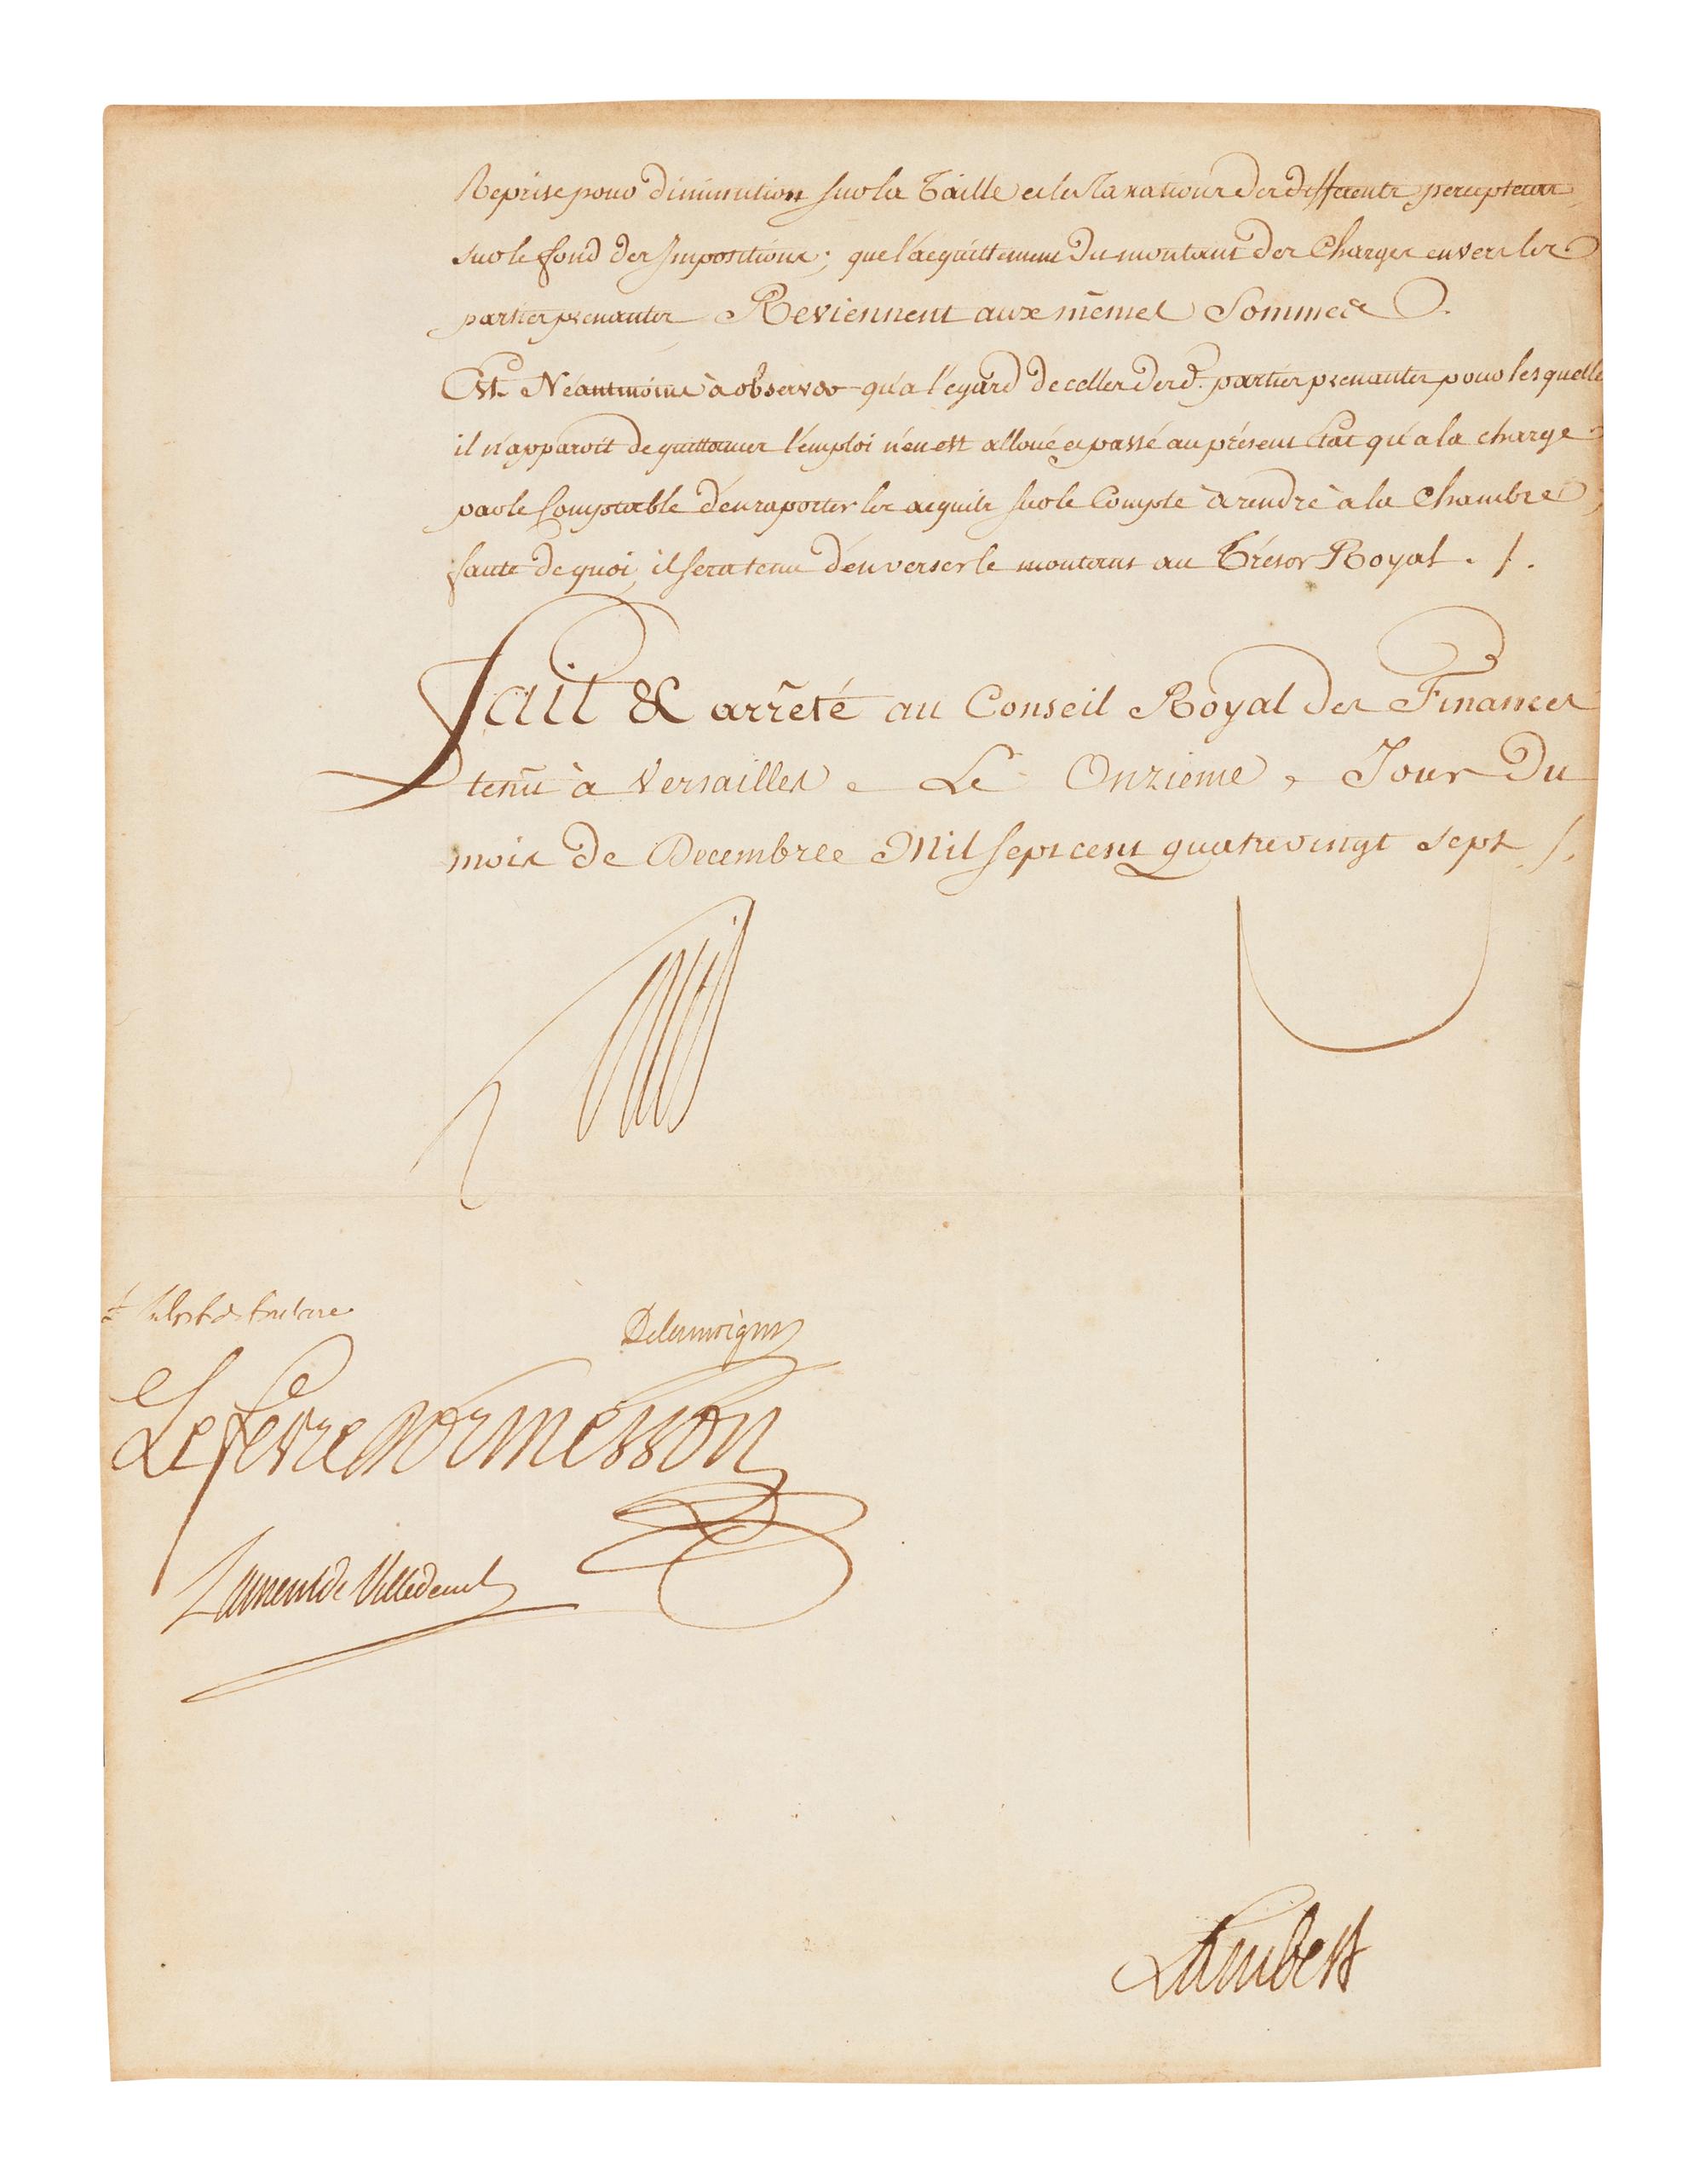 Reprise pour diminution sur la Taille et les Taxations des differents percepteurs
sur le fond des Impositions; que l'acquittement du montant des Charges envers les
parties prenantes Reviennent aux mêmes Sommes.
Est Néantmoins à observer qu'a l'egard de celles desd. parties prenantes pour lesquelle
il n'apparoit de quittances l'emploi n'en est alloué et passé au présent Etat qu'a la charge
par le Comptable d'en raporter les acquits sur le Compte à rendre à la Chambre
faute de quoi, il sera tenu d'en verser le montant au Trésor Royal ./.
Fait & arrêté au Conseil Royal des Finances
tenu à Versailles Le Onzieme Jour Du
mois de Decembre Mil sept cent quatre vingt sept ./.
Delamoignon
Lefevre Dormesson
Laurent de Villedeuil
Lambert